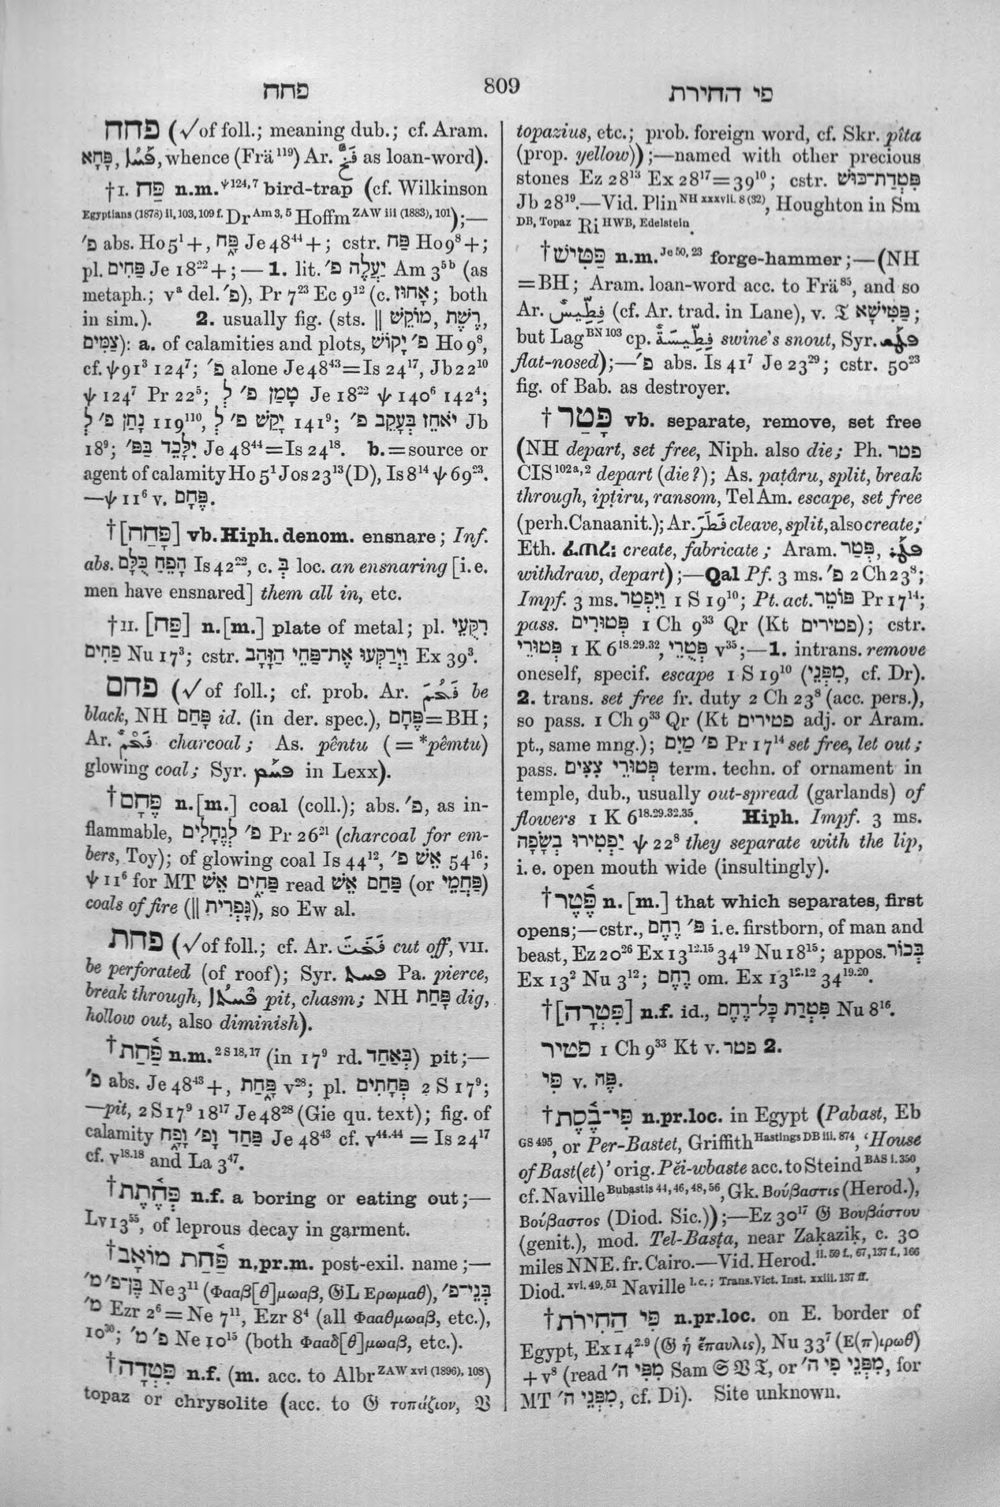 פחח
809
פי החירת
פחח (√of foll.; meaning dub.; cf. Aram.
whence (Frä¹¹⁹) Ar. فَخّ as loan-word).
†I. פַּח n.m. ψ124,7 bird-trap (cf. Wilkinson
Egyptians (1878) ii, 103, 109 f. Dr Am 3, 5 Hoffm ZAW iii (1883), 101);—
פ׳ abs. Ho 5¹+, פָּ֑ח Je 48⁴⁴+; cstr. פַּח Ho 9⁸+;
pl. פַּחִים Je 18²²+;—1. lit. יַעֲלֶה פ׳ Am 3⁵ᵇ (as
metaph.; vᵃ del. פ׳), Pr 7²³ Ec 9¹² (c. אָחוּז; both
in sim.). 2. usually fig. (sts. ‖ מוֹקֵשׁ, רֶשֶׁת,
צַמִּים): a. of calamities and plots, פ׳ יָקוֹשׁ Ho 9⁸,
cf. ψ 91³ 124⁷; פ׳ alone Je 48⁴³=Is 24¹⁷, Jb 22¹⁰
ψ 124⁷ Pr 22⁵; טָמַן פ׳ לְ Je 18²² ψ 140⁶ 142⁴;
נָתַן פ׳ לְ 119¹¹⁰, יָקשׁ פ׳ לְ 141⁹; יֹאחֵז בְּעָקֵב פ׳ Jb
18⁹; יִלָּכֵד בַּפּ׳ Je 48⁴⁴=Is 24¹⁸. b.=source or
agent of calamity Ho 5¹ Jos 23¹³ (D), Is 8¹⁴ ψ 69²³.
—ψ 11⁶ v. פֶּחָם.
†[פָּחַח] vb. Hiph. denom. ensnare; Inf.
abs. הָפֵחַ כֻּלָּם Is 42²², c. בְּ loc. an ensnaring [i.e.
men have ensnared] them all in, etc.
†II. [פַּח] n.[m.] plate of metal; pl. רִקֻּעֵי
פַחִים Nu 17³; cstr. וַיְרַקְּעוּ אֶת־פַּחֵי הַזָּהָב Ex 39³.
פחם (√of foll.; cf. prob. Ar. فَحُمَ be
black, NH פֶּחָם id. (in der. spec.), פֶּחָם=BH;
Ar. فَحْم charcoal; As. pêntu (=*pêmtu)
glowing coal; Syr. in Lexx).
†פֶּחָם n.[m.] coal (coll.); abs. פ׳, as in-
flammable, פ׳ לְגֶחָלִים Pr 26²¹ (charcoal for em-
bers, Toy); of glowing coal Is 44¹², אֵשׁ פ׳ 54¹⁶;
ψ 11⁶ for MT פַּחִים אֵשׁ read פַּחַם אֵשׁ (or פַּחֲמֵי)
coals of fire (‖ גָּפְרִית), so Ew al.
פחת (√of foll.; cf. Ar. فَخَتَ cut off, VII.
be perforated (of roof); Syr. Pa. pierce,
break through, pit, chasm; NH פָּחַת dig,
hollow out, also diminish).
†פַּ֫חַת n.m. 2 S 18,17 (in 17⁹ rd. בְּאַחַד) pit;—
פ׳ abs. Je 48⁴³+, פָּ֑חַת v²⁸; pl. פְּחָתִים 2 S 17⁹;
—pit, 2 S 17⁹ 18¹⁷ Je 48²⁸ (Gie qu. text); fig. of
calamity פַּחַד וָפ׳ וָפָח Je 48⁴³ cf. v⁴⁴·⁴⁴ = Is 24¹⁷
cf. v¹⁸·¹⁸ and La 3⁴⁷.
†פְּחֶ֫תֶת n.f. a boring or eating out;—
Lv 13⁵⁵, of leprous decay in garment.
†פַּ֫חַת מוֹאָב n.pr.m. post-exil. name;—
בֶּן־פ׳ מ׳ Ne 3¹¹ (Φααβ[θ]μωαβ, 𝔊L Ερωμαθ), בְּנֵי־פ׳
מ׳ Ezr 2⁶=Ne 7¹¹, Ezr 8⁴ (all Φααθμωαβ, etc.),
10³⁰; פ׳ מ׳ Ne 10¹⁵ (both Φααδ[θ]μωαβ, etc.).
†פִּטְדָה n.f. (m. acc. to Albr ZAW xvi (1896), 108)
topaz or chrysolite (acc. to 𝔊 τοπάζιον, 𝔙
topazius, etc.; prob. foreign word, cf. Skr. pîta
(prop. yellow));—named with other precious
stones Ez 28¹³ Ex 28¹⁷=39¹⁰; cstr. פִּטְדַת־כּוּשׁ
Jb 28¹⁹.—Vid. Plin NH xxxvii. 8 (32), Houghton in Sm
DB, Topaz Ri HWB, Edelstein.
†פַּטִּישׁ n.m. Je 50, 23 forge-hammer;—(NH
=BH; Aram. loan-word acc. to Frä⁸⁵, and so
Ar. فِطِّيس (cf. Ar. trad. in Lane), v. 𝔗 פַּטִּישָׁא;
but Lag BN 103 cp. فِطِّيسَة swine's snout, Syr.
flat-nosed);—פ׳ abs. Is 41⁷ Je 23²⁹; cstr. 50²³
fig. of Bab. as destroyer.
†פָּטַר vb. separate, remove, set free
(NH depart, set free, Niph. also die; Ph. פטר
CIS 102a,2 depart (die?); As. paṭâru, split, break
through, ipṭiru, ransom, Tel Am. escape, set free
(perh. Canaanit.); Ar. فَطَرَ cleave, split, also create;
Eth. ፈጠረ፡ create, fabricate; Aram. פְּטַר,
withdraw, depart);—Qal Pf. 3 ms. פ׳ 2 Ch 23⁸;
Impf. 3 ms. וַיִּפְטַר 1 S 19¹⁰; Pt. act. פּוֹטֵר Pr 17¹⁴;
pass. פְּטוּרִים 1 Ch 9³³ Qr (Kt פטירים); cstr.
פְּטוּרֵי 1 K 6¹⁸·²⁹·³², פְּטֻרֵי v³⁵;—1. intrans. remove
oneself, specif. escape 1 S 19¹⁰ (מִפְּנֵי, cf. Dr).
2. trans. set free fr. duty 2 Ch 23⁸ (acc. pers.),
so pass. 1 Ch 9³³ Qr (Kt פטירים adj. or Aram.
pt., same mng.); פ׳ מַיִם Pr 17¹⁴ set free, let out;
pass. פְּטוּרֵי צִצִּים term. techn. of ornament in
temple, dub., usually out-spread (garlands) of
flowers 1 K 6¹⁸·²⁹·³²·³⁵. Hiph. Impf. 3 ms.
יַפְטִירוּ בְשָׂפָה ψ 22⁸ they separate with the lip,
i.e. open mouth wide (insultingly).
†פֶּ֫טֶר n.[m.] that which separates, first
opens;—cstr., פ׳ רֶחֶם i.e. firstborn, of man and
beast, Ez 20²⁶ Ex 13¹²·¹⁵ 34¹⁹ Nu 18¹⁵; appos. בְּכוֹר
Ex 13² Nu 3¹²; רֶחֶם om. Ex 13¹²·¹² 34¹⁹·²⁰.
†[פִּטְרָה] n.f. id., פִּטְרַת כָּל־רֶחֶם Nu 8¹⁶.
פטיר 1 Ch 9³³ Kt v. פטר 2.
פִּי v. פֶּה.
†פִּי־בֶ֫סֶת n.pr.loc. in Egypt (Pabast, Eb
GS 495, or Per-Bastet, Griffith Hastings DB iii. 874, 'House
of Bast(et)' orig. Pĕi-wbaste acc. to Steind BAS i. 350,
cf. Naville Bubastis 44, 46, 48, 56, Gk. Βούβαστις (Herod.),
Βούβαστος (Diod. Sic.));—Ez 30¹⁷ 𝔊 Βουβάστου
(genit.), mod. Tel-Basṭa, near Zaḳaziḳ, c. 30
miles NNE. fr. Cairo.—Vid. Herod. ii. 59 f., 67, 137 f., 166
Diod. xvi. 49, 51 Naville l.c.; Trans. Vict. Inst. xxiii. 137 ff.
†פִּי הַחִירֹת n.pr.loc. on E. border of
Egypt, Ex 14²·⁹ (𝔊 ἡ ἔπαυλις), Nu 33⁷ (Ε(π)ιρωθ)
+v⁸ (read מִפִּי ה׳ Sam 𝔖 𝔙 𝔗, or מִפְּנֵי פִּי ה׳, for
MT מִפְּנֵי ה׳, cf. Di). Site unknown.